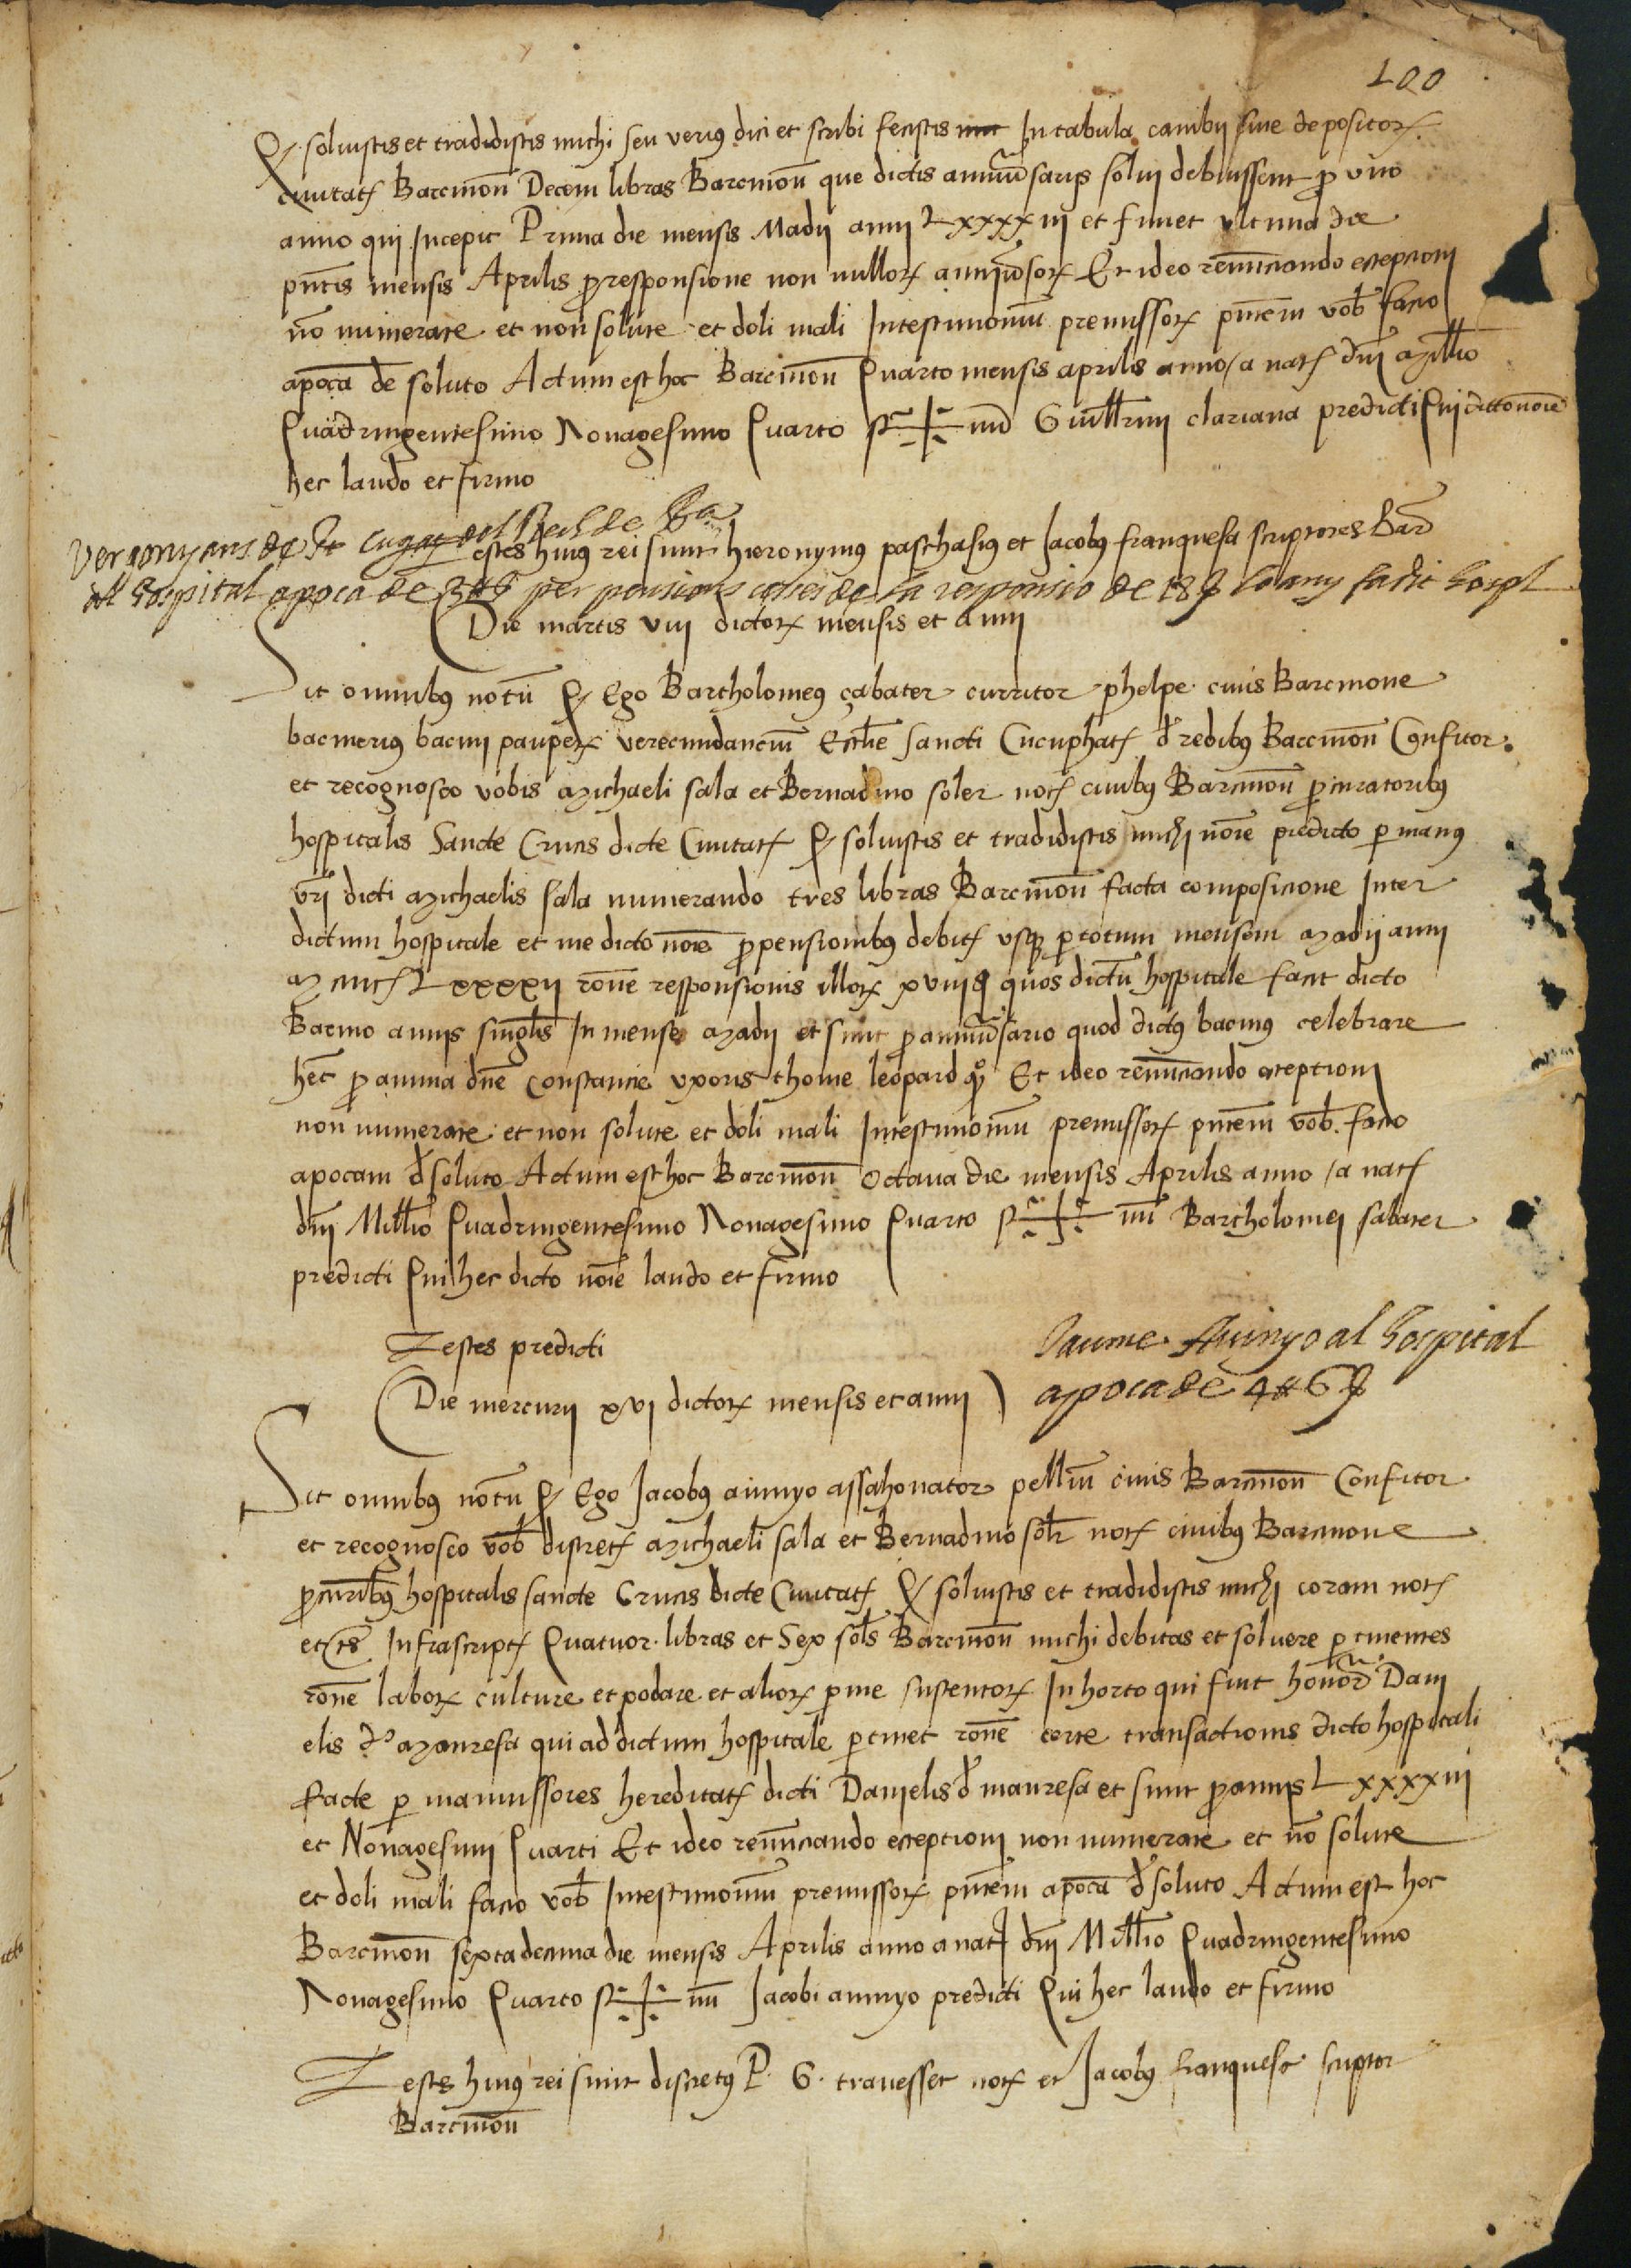 100
Q. soluistis et tradidistis michi seu verius dici et scribi fecistis In tabula cambij siue depositorꝝ
Ciuitatꝭ Barcinon̄ Decem libras Barcinon̄ que dictis anniu͞sarijs solui debuissent ꝓ vno
anno qui Incepit Prima die mensis Madij anni Lxxxxiij et finiet vltima die
pn̄tis mensis Aprilis ꝓ responsione non nullorꝝ anniu͞sorꝝ Et ideo renūciando excepcioni
nō numerate et non solute et doli mali Intestimoniū premissorꝝ pn̄tem vob̄ facio
apocā de soluto Actum est hoc Barcinon̄ Quarto mensis aprilis anno a natꝭ dn̄i Mill̄io
Quadringentesimo Nonagesimo Quarto S✝nū Guill̄mi clariana predicti Qui dicto noīe
hec laudo et firmo
Vergonyans de St Cugat del Rech de Ba
estes huiꝰ rei sunt hieronymꝰ paschasiꝰ et Jacobꝰ franquesa scriptores Bar̄
al Hospital apoca de 3 ₶ per pensions de la responsio de 18 ß lo any fa dit Hospl
Die martis viij dictorꝝ mensis et anni
Sit omnibꝰ notū Q Ego Bartholomeꝰ çabater curritor phelpe ciuis Barcinone
bacineriꝰ bacini pauperꝝ verecundanciū Eccl̄ie Sancti Cucuphatꝭ d̄ redibꝰ Barcinon̄ Confitor
et recognosco vobis Michaeli sala et Bernadino soler notꝭ ciuibꝰ Barcinon̄ ꝓcuratoribꝰ
hospitalis Sancte Crucis dicte Ciuitatꝭ Q soluistis et tradidistis michi noīe predicto ꝑ manꝰ
vr̄i dicti Michaelis sala numerando tres libras Barcinon̄ facta composicione Inter
dictum hospitale et me dicto noīe ꝓ pensionibꝰ debitꝭ vsqꝫ ꝑ totum mensem Madij anni
Mcccc Lxxxxij rōne responsionis illorꝝ xviij ß quos dictū hospitale facit dicto
Bacino annis singl̄is In mense Madij et sunt ꝓ anniu͞sario quod dictꝰ bacinꝰ celebrare
hēt ꝓ anima dn̄e Constancie vxoris thome leopard qº Et ideo renūciando exceptioni
non numerate et non solute et doli mali Intestimoniū premissorꝝ pn̄tem vob̄ facio
apocam d̄ soluto Actum est hoc Barcinon̄ Octaua die mensis Aprilis anno a natꝭ
dn̄i Mill̄io Quadringentesimo Nonagesimo Quarto S✝nū Bartholomei sabater
predicti Qui hec dicto noīe laudo et firmo
Testes predicti
Jaume Auinyo al Hospital
apoca de 4 ₶ 6 ß
Die mercurij xvj dictorꝝ mensis et anni
Sit omnibꝰ notū Q Ego Jacobꝰ ainnyo assahonator pelliū ciuis Barcinon̄ Confitor
et recognosco vob̄ discretꝭ Michaeli sala et Bernadino sol̄r notꝭ ciuibꝰ Barcinone
ꝓcur̄ibꝰ hospitalis sancte Crucis dicte Ciuitatꝭ Q soluistis et tradidistis michi coram notꝭ
et tꝭ Infrascriptꝭ Quatuor libras et Sex sol̄s Barcinon̄ michi debitas et soluere ꝑtinentes
rōne laborꝝ culture et podare et aliorꝝ ꝑ me sustentorꝝ In horto qui fuit honor̄ Dani
elis d̄ Manresa qui ad dictum hospitale ꝑtinet rōne certe transactionis dicto hospitali
facte ꝑ manumissores hereditatꝭ dicti Danielis d̄ manresa et sunt ꝓ annis Lxxxxiij
et Nonagesimi Quarti Et ideo renūciando exceptioni non numerate et nō solute
et doli mali facio vob̄ Intestimoniū premissorꝝ pn̄tem apocā d̄ soluto Actum est hoc
Barcinon̄ sextadecima die mensis Aprilis anno a natꝭ dn̄i Mill̄io Quadringentesimo
Nonagesimo Quarto S✝nū Jacobi ainnyo predicti Qui hec laudo et firmo
Testes huiꝰ rei sunt discretꝰ P. G. trauesset notꝭ et Jacobꝰ franquesa scriptor
Barcinon̄